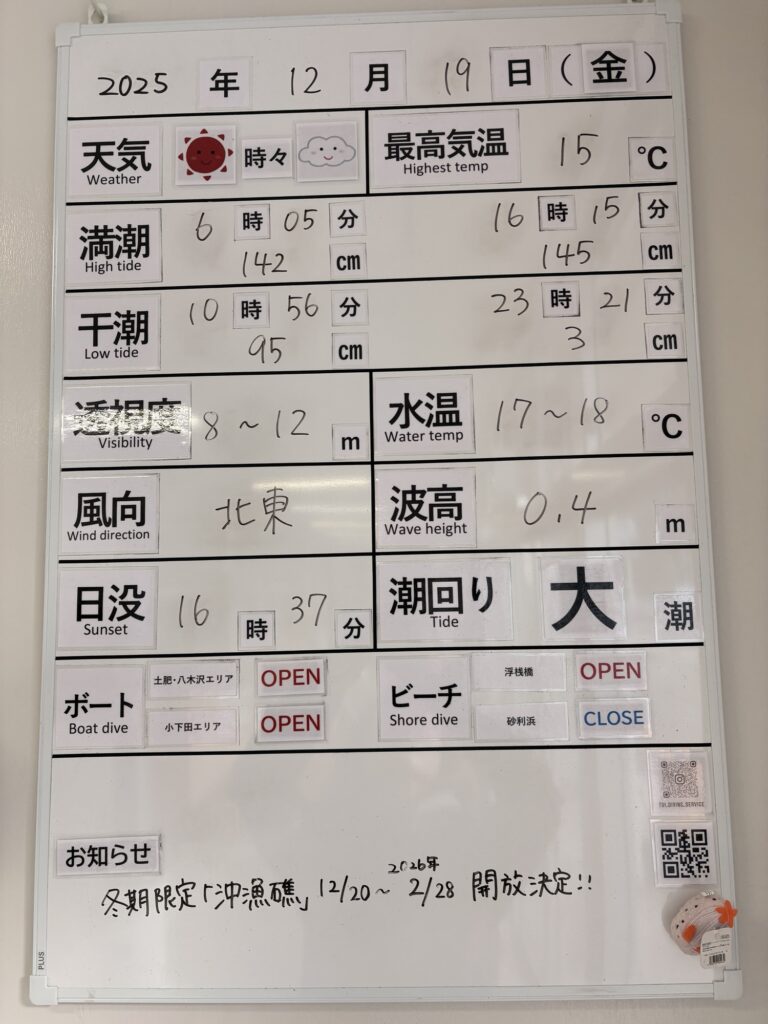 2025 年 12 月 19 日 (金)
天気 時々 最高気温 15 ℃
Weather Highest temp
満潮 6 時 05 分 16 時 15 分
High tide 142 cm 145 cm
干潮 10 時 56 分 23 時 21 分
Low tide 95 cm 3 cm
透視度 8~12 m 水温 17~18 ℃
Visibility Water temp
風向 北東 波高 0.4 m
Wind direction Wave height
日没 16 時 37 分 潮回り 大 潮
Sunset Tide
ボート 土肥・八木沢エリア OPEN ビーチ 浮桟橋 OPEN
Boat dive 小下田エリア OPEN Shore dive 砂利浜 CLOSE
TOI_DIVING_SERVICE
お知らせ
冬期限定「沖漁礁」12/20~2026年2/28 開放決定!!
PLUS